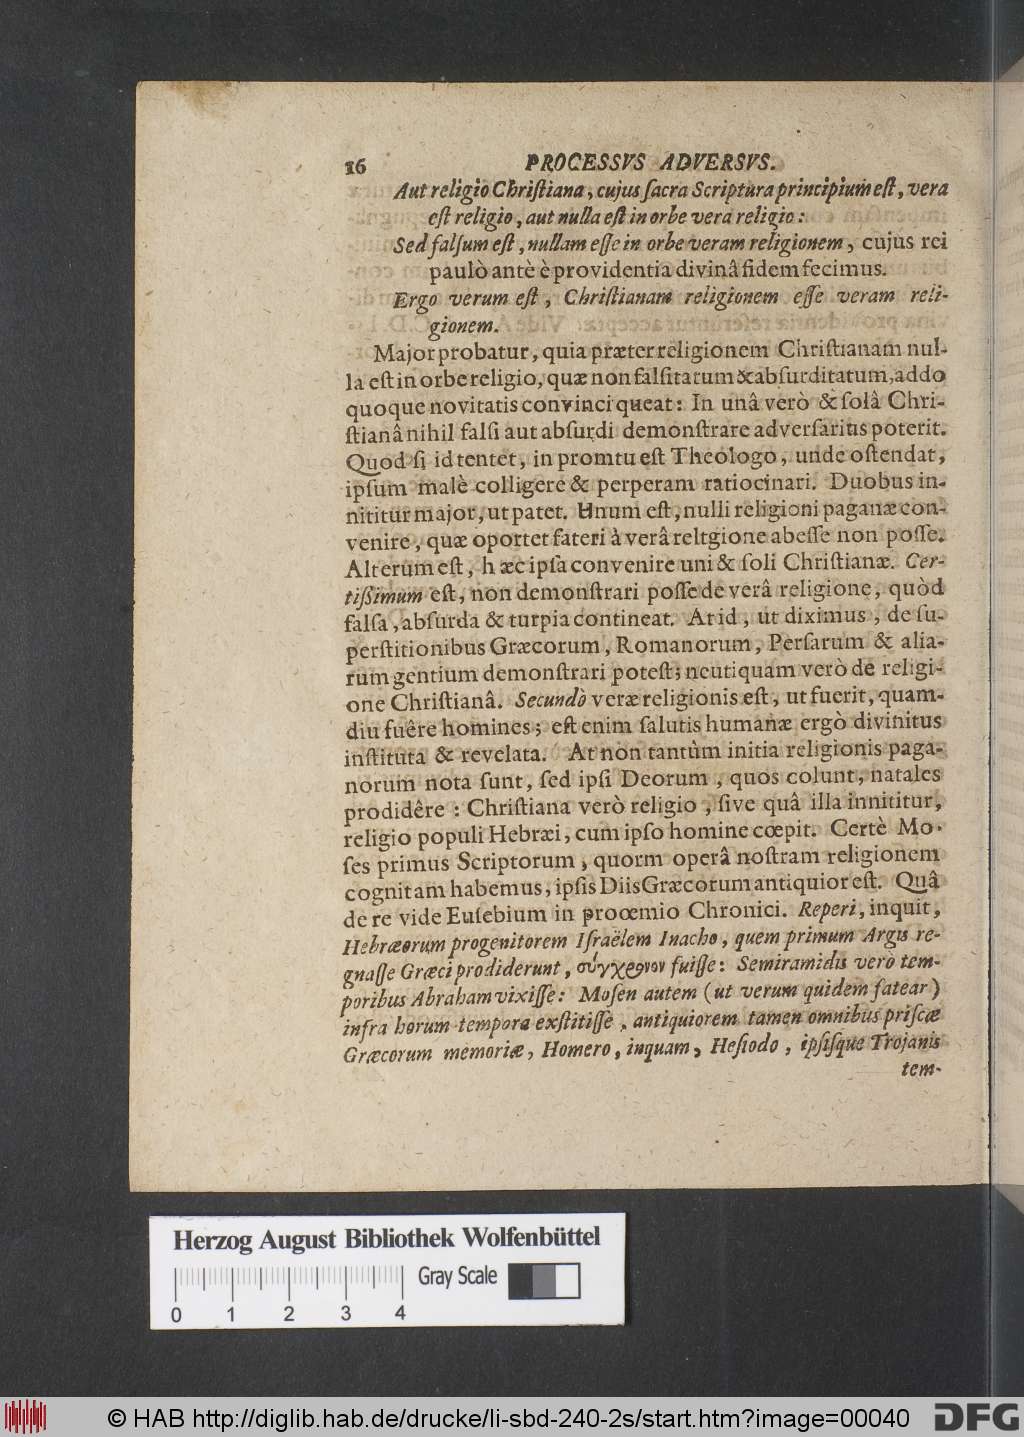 16 PROCESSVS ADVERSVS.
Aut religio Chriſtiana, cujus ſacra Scriptura principium eſt, vera
eſt religio, aut nulla eſt in orbe vera religio:
Sed falſum eſt, nullam eſſe in orbe veram religionem, cujus rei
paulò antè è providentia divinâ fidem fecimus.
Ergo verum eſt, Chriſtianam religionem eſſe veram reli-
gionem.
Major probatur, quia præter religionem Chriſtianam nul-
la eſt in orbe religio, quæ non falſitatum & abſurditatum, addo
quoque novitatis convinci queat: In unâ verò & ſolâ Chri-
ſtianâ nihil falſi aut abſurdi demonſtrare adverſarius poterit.
Quod ſi id tentet, in promtu eſt Theologo, unde oſtendat,
ipſum malè colligere & perperam ratiocinari. Duobus in-
nititur major, ut patet. Unum eſt, nulli religioni paganæ con-
venire, quæ oportet fateri à verâ reltgione abeſſe non poſſe.
Alterum eſt, hæc ipſa convenire uni & ſoli Chriſtianæ. Cer-
tißimum eſt, non demonſtrari poſſe de verâ religione, quòd
falſa, abſurda & turpia contineat. At id, ut diximus, de ſu-
perſtitionibus Græcorum, Romanorum, Perſarum & alia-
rum gentium demonſtrari poteſt; neutiquam verò de religi-
one Chriſtianâ. Secundò veræ religionis eſt, ut fuerit, quam-
diu fuêre homines; eſt enim ſalutis humanæ ergò divinitus
inſtituta & revelata. At non tantùm initia religionis paga-
norum nota ſunt, ſed ipſi Deorum, quos colunt, natales
prodidêre: Chriſtiana verò religio, ſive quâ illa innititur,
religio populi Hebræi, cum ipſo homine cœpit. Certè Mo-
ſes primus Scriptorum, quorm operâ noſtram religionem
cognitam habemus, ipſis Diis Græcorum antiquior eſt. Quâ
de re vide Euſebium in proœmio Chronici. Reperi, inquit,
Hebræorum progenitorem Iſraëlem Inacho, quem primum Argis re-
gnaſſe Græci prodiderunt, σύγχρονον fuiſſe: Semiramidis verò tem-
poribus Abraham vixiſſe: Moſen autem (ut verum quidem fatear)
infra horum tempora exſtitiſſe, antiquiorem tamen omnibus priſcæ
Græcorum memoriæ, Homero, inquam, Heſiodo, ipſiſque Trojanis
tem-
Herzog August Bibliothek Wolfenbüttel
Gray Scale
0 1 2 3 4
© HAB http://diglib.hab.de/drucke/li-sbd-240-2s/start.htm?image=00040 DFG